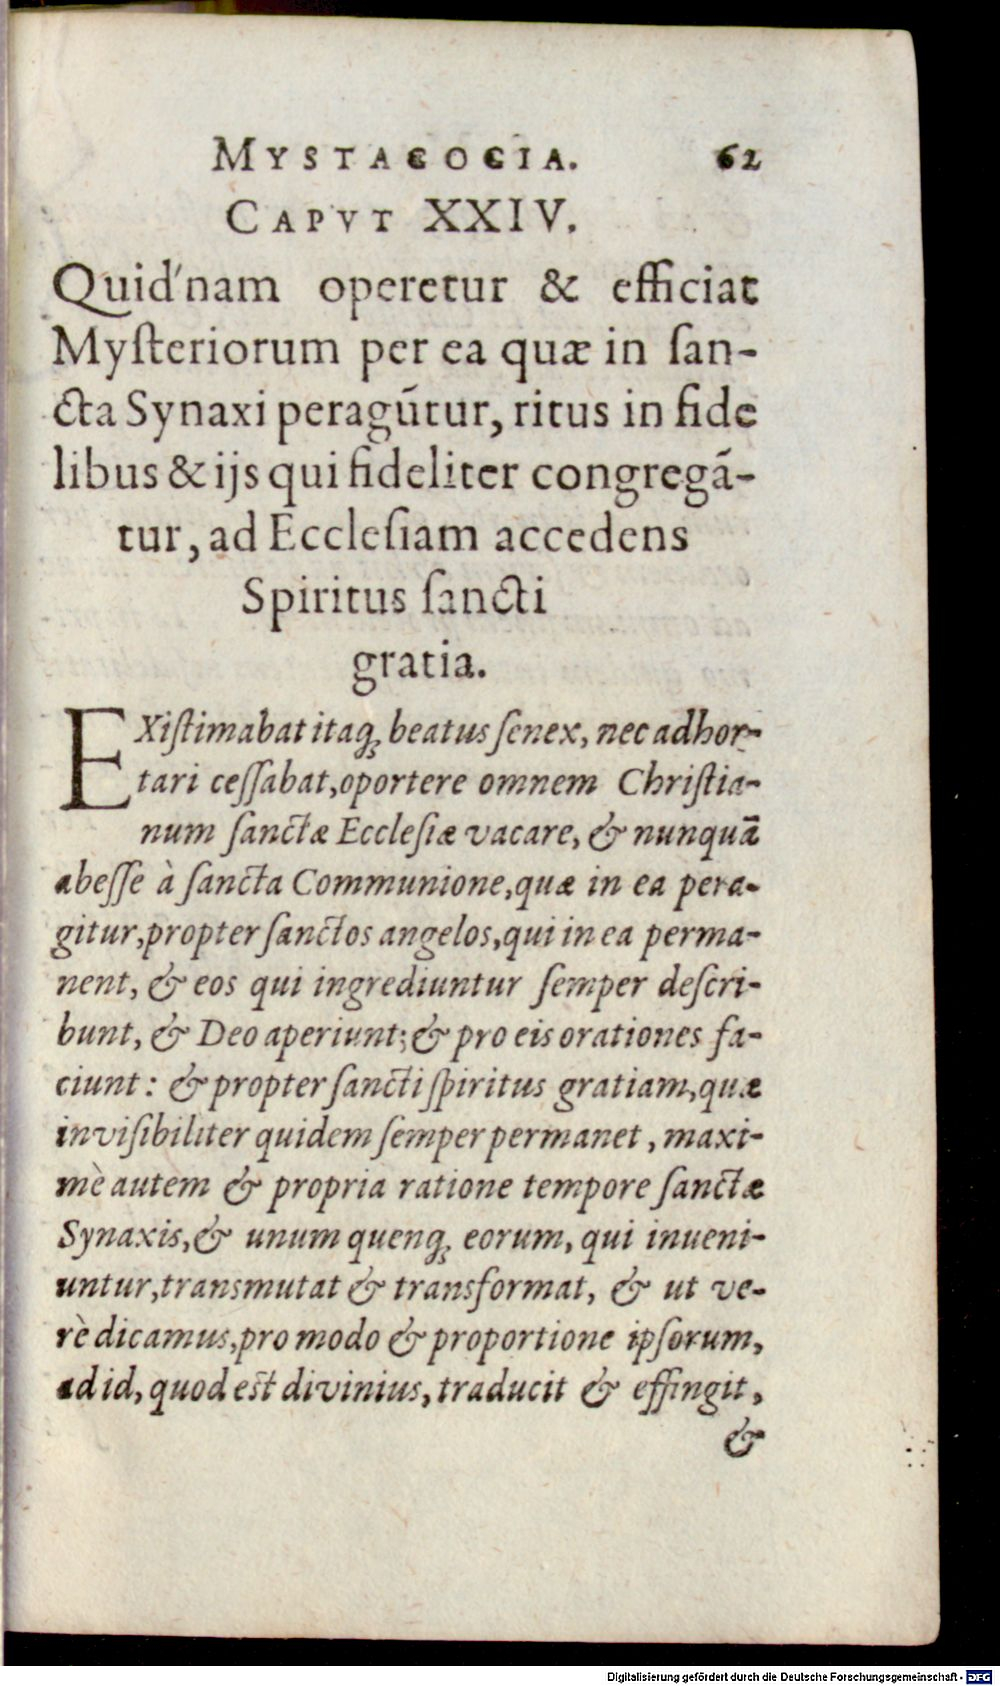 MYSTAGOGIA. 62
CAPVT XXIV.
Quid'nam operetur & efficiat
Myſteriorum per ea quæ in ſan-
cta Synaxi peragūtur, ritus in fide
libus & ijs qui fideliter congregā-
tur, ad Eccleſiam accedens
Spiritus ſancti
gratia.
EXiſtimabat itaq; beatus ſenex, nec adhor-
tari ceſſabat, oportere omnem Chriſtia-
num ſanctæ Eccleſiæ vacare, & nunquā
abeſſe à ſancta Communione, quæ in ea pera-
gitur, propter ſanctos angelos, qui in ea perma-
nent, & eos qui ingrediuntur ſemper deſcri-
bunt, & Deo aperiunt; & pro eis orationes fa-
ciunt: & propter ſancti ſpiritus gratiam, quæ
inviſibiliter quidem ſemper permanet, maxi-
mè autem & propria ratione tempore ſanctæ
Synaxis, & unum quenq; eorum, qui inueni-
untur, transmutat & transformat, & ut ve-
rè dicamus, pro modo & proportione ipſorum,
ad id, quod est divinius, traducit & effingit,
&
Digitalisierung gefördert durch die Deutsche Forschungsgemeinschaft - DFG